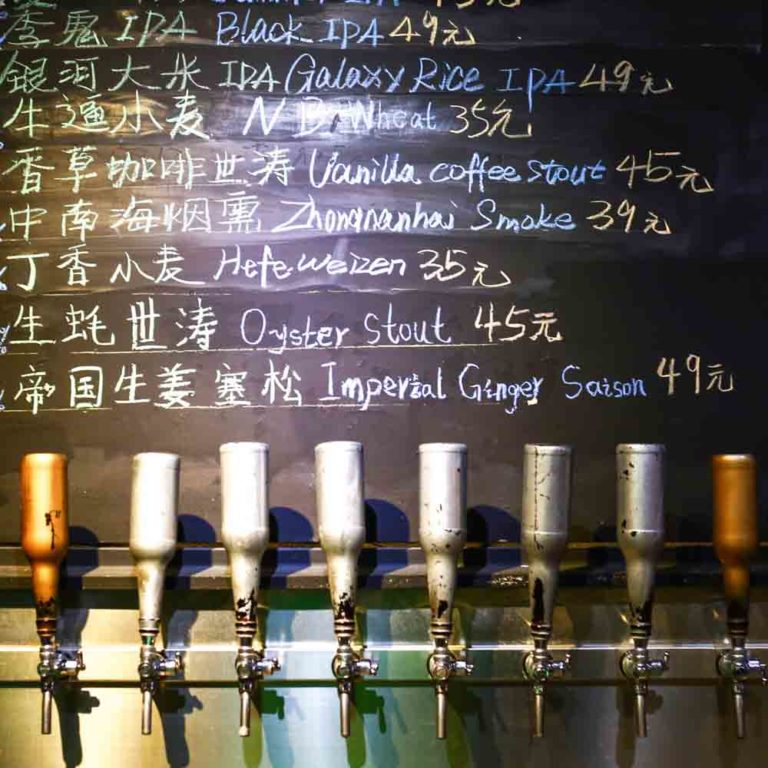 IPA
李鬼 IPA Black IPA 49元
银河大米 IPA Galaxy Rice IPA 49元
牛逼小麦 NB Wheat 35元
香草咖啡世涛 Vanilla coffee stout 45元
中南海烟熏 Zhongnanhai Smoke 39元
丁香小麦 Hefeweizen 35元
生蚝世涛 Oyster Stout 45元
帝国生姜塞松 Imperial Ginger Saison 49元